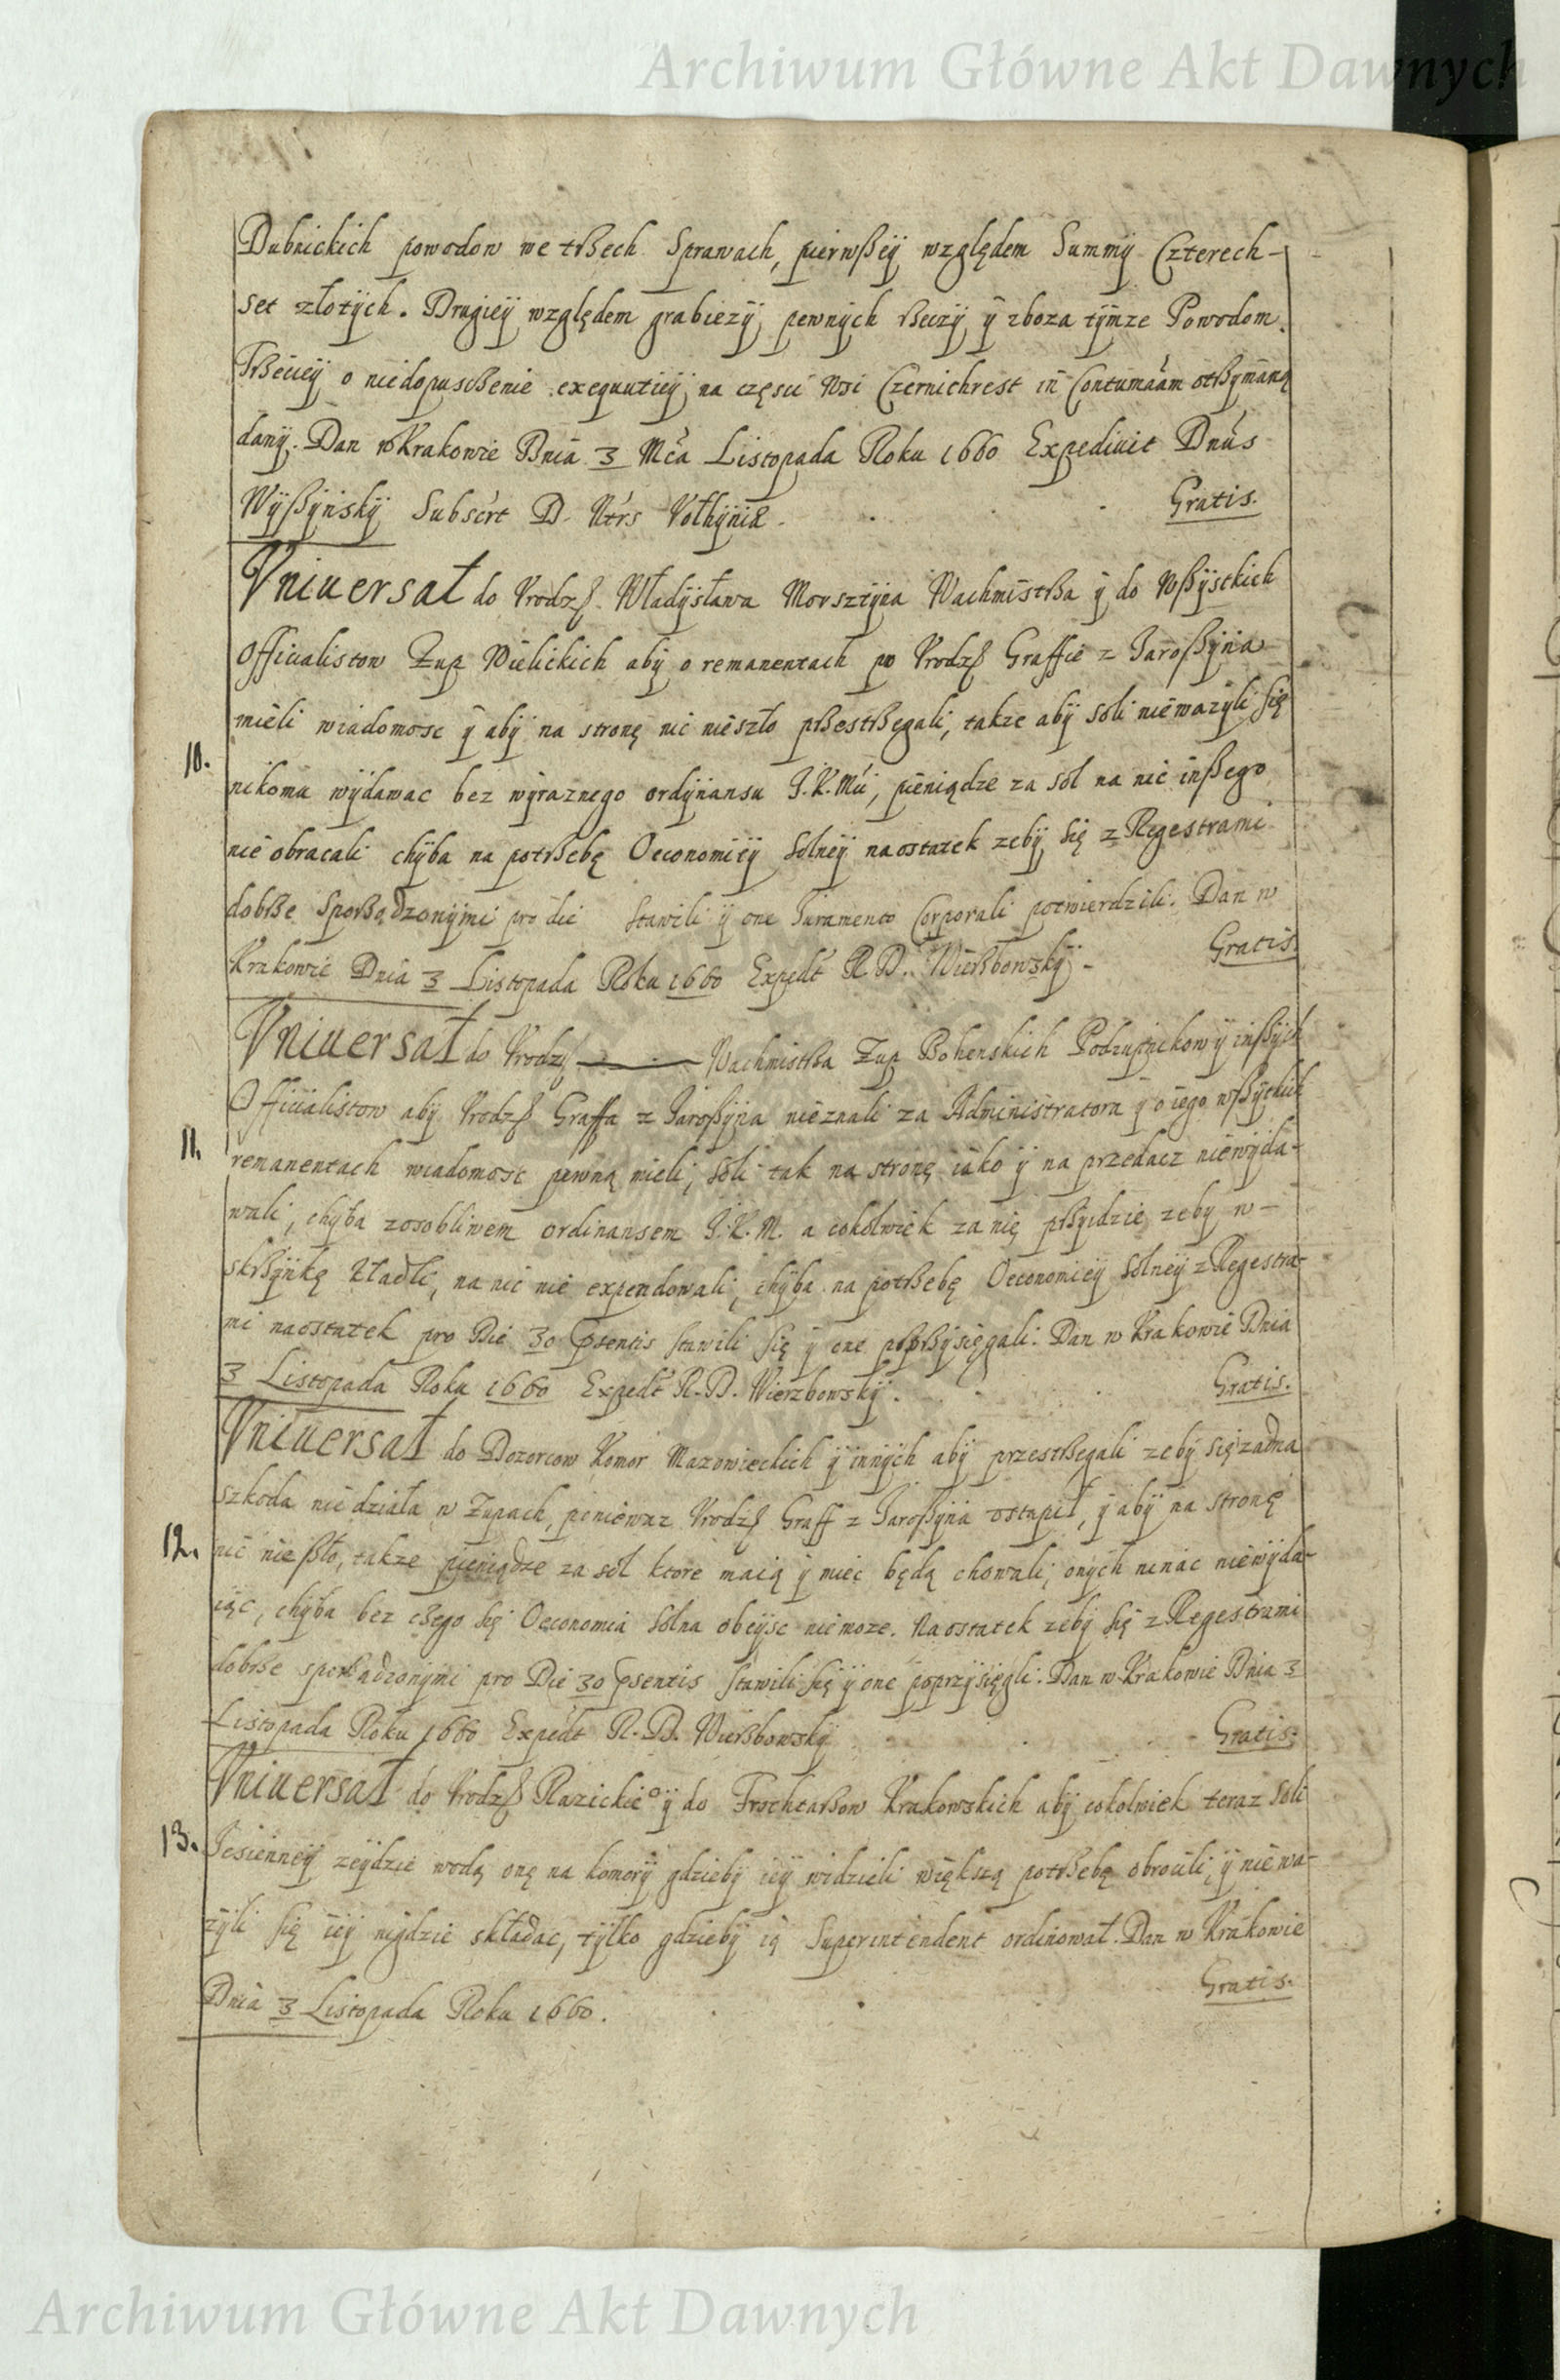 Archiwum Główne Akt Dawnych
Dubnickich powodow we trßech Sprawach, pierwßey względem Summy Czterech-
set złotych. Drugiey względem grabieży pewnych rßeczy y zboza tymze Powodom.
Trßeciey o niedopusczenie exequutiey na częsci Wsi Czernichrest in Contumaām otrßymaną
dany. Dan w Krakowie Dnia 3 Mca Listopada Roku 1660 Expediuit Dnūs
Wyßyński Subscrt D. Ntrs Vołhyniæ. Gratis.
Vniuersał do Vrodzß. Władysława Morsztyna Wachmistrßa y do Wßystkich
Officialistow Zup Wielickich aby o remanentach po Vrodzß Graffie z Jaroßyna
mieli wiadomosc y aby na stronę nic nieszło prßestrßegali, takze aby soli niewazyli się
10.
nikomu wydawac bez wyraznego ordynansu J.K.Mci, pieniądze za sol na nic inßego
nie obracali chyba na potrßebę Oeconomiey solney naostatek zeby się z Regestrami
dobrße sporßądzonymi pro die stawili y one Juramento Corporali potwierdzili. Dan w
Krakowie Dnia 3 Listopada Roku 1660 Expedt R.D. Wierßbowsky - Gratis.
Vniuersał do Vrodzß Wachmistrßa Zup Bohenskich Podzupkow y inßych
Officialistow aby Vrodzß Graffa z Jaroßyna nieznali za Administratora y o iego wßystkich
11.
remanentach wiadomosc pewną mieli, soli tak na stronę iako y na przedacz niewyda-
wali, chyba zosobliwem ordinansem J.K.M. a cokolwiek za nię prßyidzie zeby w-
skrßynkę kładli, na nic nie expendowali, chyba na potrßebę Oeconomiey solney z Regestra-
mi naostatek pro Die 30 psentis stawili się y one poprßysięgali. Dan w Krakowie Dnia
3 Listopada Roku 1660 Expedt R.D. Wierzbowsky. Gratis.
Vniuersał do Dozorcow Komor Mazowieckich y innych aby przestrßegali zeby się zadna
szkoda nie działa w Zupach, poniewaz Vrodzß Graff z Jaroßyna ostąpił, y aby na stronę
12.
nic nießło, takze pieniądze za sol ktore maią y miec będą chowali, onych ninac niewyda-
iąc, chyba bez cßego się Oeconomia solna obeysc niemoze. Naostatek zeby się z Regestrami
dobrße sporßądzonymi pro Die 30 psentis stawili się y one poprzysięgli. Dan w Krakowie Dnia 3
Listopada Roku 1660 Expedt R.D. Wierßbowsky Gratis.
Vniuersał do Vrodzß Razickie° y do Frochtarßow Krakowskich aby cokolwiek teraz soli
13.
Jesienney zeydzie wodą onę na komory gdzieby iey widzieli większą potrßebę obrocili, y niewa-
zyli się iey nigdzie składac, tylko gdzieby ią Superintendent ordinował. Dan w Krakowie
Dnia 3 Listopada Roku 1660. Gratis.
Archiwum Główne Akt Dawnych